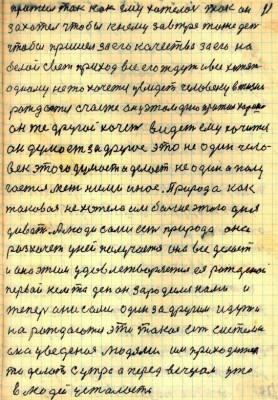 пришел так как ему хотелося так он
захотел чтобы к нему завтра тиже ден
чтобы пришел за его качество за его на
белой свет приход все его ждут и не хотят
одному не похочется увидет человеку в жизни
он же другой хочет видет ему хочется
он думает за другое это не один чело-
век этого думает и делает не один а полу
чается меж ними иное. Природа как
таковая не хотела им более этого дня
дават. А люди сами ест природа она
разхочет у ней получается она все делает
и она этим удовлетворяется ея рожденой
первой кем то ден он зародился нами и
теперь они сами один за другим идут и
на рождаются эти такая ест система
она уведеная людями им приходится
то делат с утра а перед вечером уже
в людей усталость